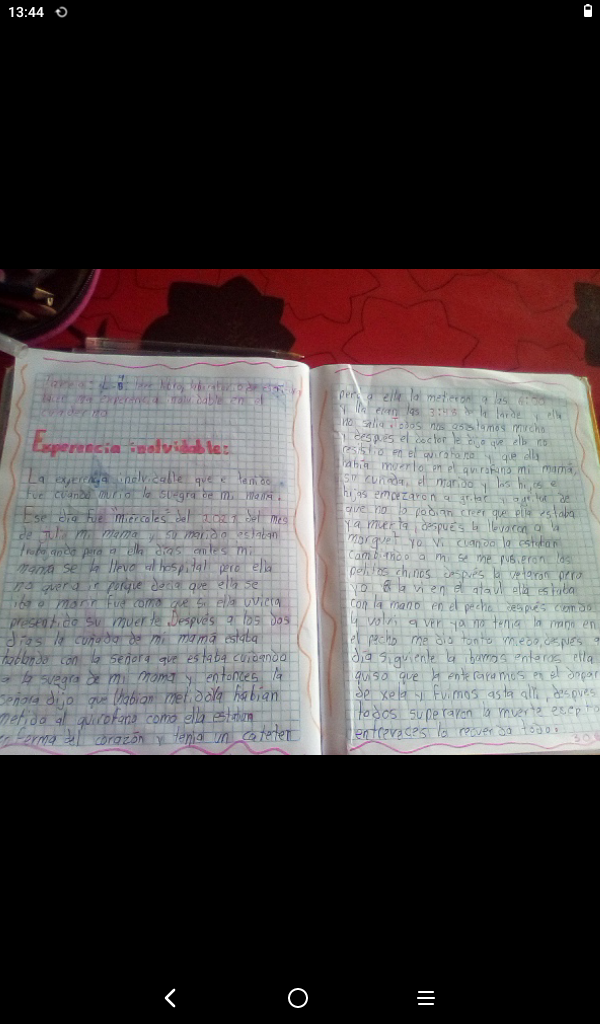 13:44
hacer una experiencia inolvidable en el
cuaderno
Experiencia inolvidable:
La experencia inolvidable que e tenido
fue cuando murio la suegra de mi mamá.
Ese día fue "miercoles" del 2021 del mes
de Julio mi mamá y su marido estaban
trabajando pero a ella días antes mi
mamá se la llevo al hospital pero ella
no queria ir porque decia que ella se
iba a morir fue como que si ella uviera
presentido su muerte. Después a los dos
días la cuñada de mi mamá estaba
hablando con la señora que estaba cuidando
a la suegra de mi mamá y entonces la
señora dijo que habian metido la habian
metido al quirofano como ella estaba
enferma del corazón y tenia un cateter
pero a ella la metieron a las
y ya eran las 3:45 de la tarde y ella
no salia todos nos asustamos mucho
y después el doctor le dijo que ella no
resistio en el quirofano y que ella
habia muerto en el quirofano mi mamá,
su cuñada, el marido y los hijos e
hijas empezaron a gritar y a gritar de
que no lo podian creer que ella estaba
ya muerta, después la llevaron a la
morgue yo vi cuando la estaban
cambiando a mi se me pusieron los
pelitos chinos después la velaron pero
yo la vi en el ataul ella estaba
con la mano en el pecho después cuando
la volvi a ver ya no tenia la mano en
el pecho me dio tanto miedo, después a
día siguiente la ibamos enterar ella
quiso que la enteraramos en el
de xela y fuimos asta alli, después
todos superaron la muerte excepto
entreveces lo recuerdo todo.